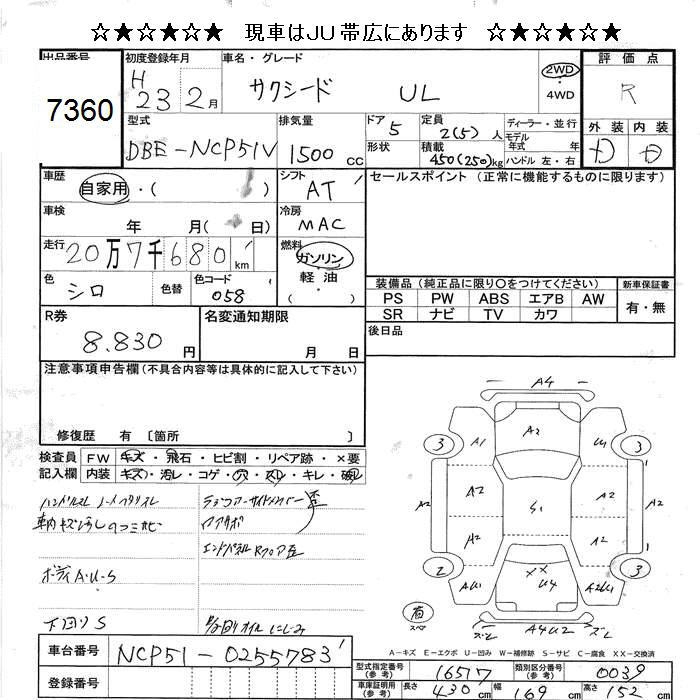 ☆★☆★☆★ 現車はJU帯広にあります ☆★☆★☆★
出品番号
7360
初度登録年月
H
23 2月
車名・グレード
サクシード UL
2WD
・
4WD
評価点
R
外装 内装
D D
型式
DBE-NCP51V
排気量
1500 cc
ドア 5
形状
定員 2(5)人
積載 450(250)kg
ディーラー・並行
モデル
年式 年
ハンドル 左・右
車歴
自家用・( )
シフト
AT
セールスポイント (正常に機能するものに限ります)
車検
年 月( 日)
冷房
MAC
走行
20万7千680 km
燃料
ガソリン
軽油
・( )
色
シロ
色替
色コード
058
装備品 (純正品に限り○をつけてください)
新車保証書
PS PW ABS エアB AW
SR ナビ TV カワ
有・無
R券
8.830 円
名変通知期限
月 日
後日品
注意事項申告欄 (不具合内容等は具体的に記入して下さい)
修復歴 有 〔箇所 〕
検査員
記入欄
FW キズ・飛石・ヒビ割・リペア跡・×要
内装 キズ・汚レ・コゲ・穴・スレ・キレ・破レ
ボディA・U・S
下回りS
A4
A2
A1
U1
3
3
A2
A2
S1
A2
A2
A2
A2
2
3
AU1
××
U4
A2U1
有
スペア
ズレ A4U2 ズレ
A-キズ E-エクボ U-凹み W-補修跡 S-サビ C-腐食 XX-交換済
車台番号
NCP51-0255783
登録番号
型式指定番号
(参考)
16517
類別区分番号
(参考)
0039
車庫証明用
(参考)
長さ 430 cm
幅 169 cm
高さ 152 cm